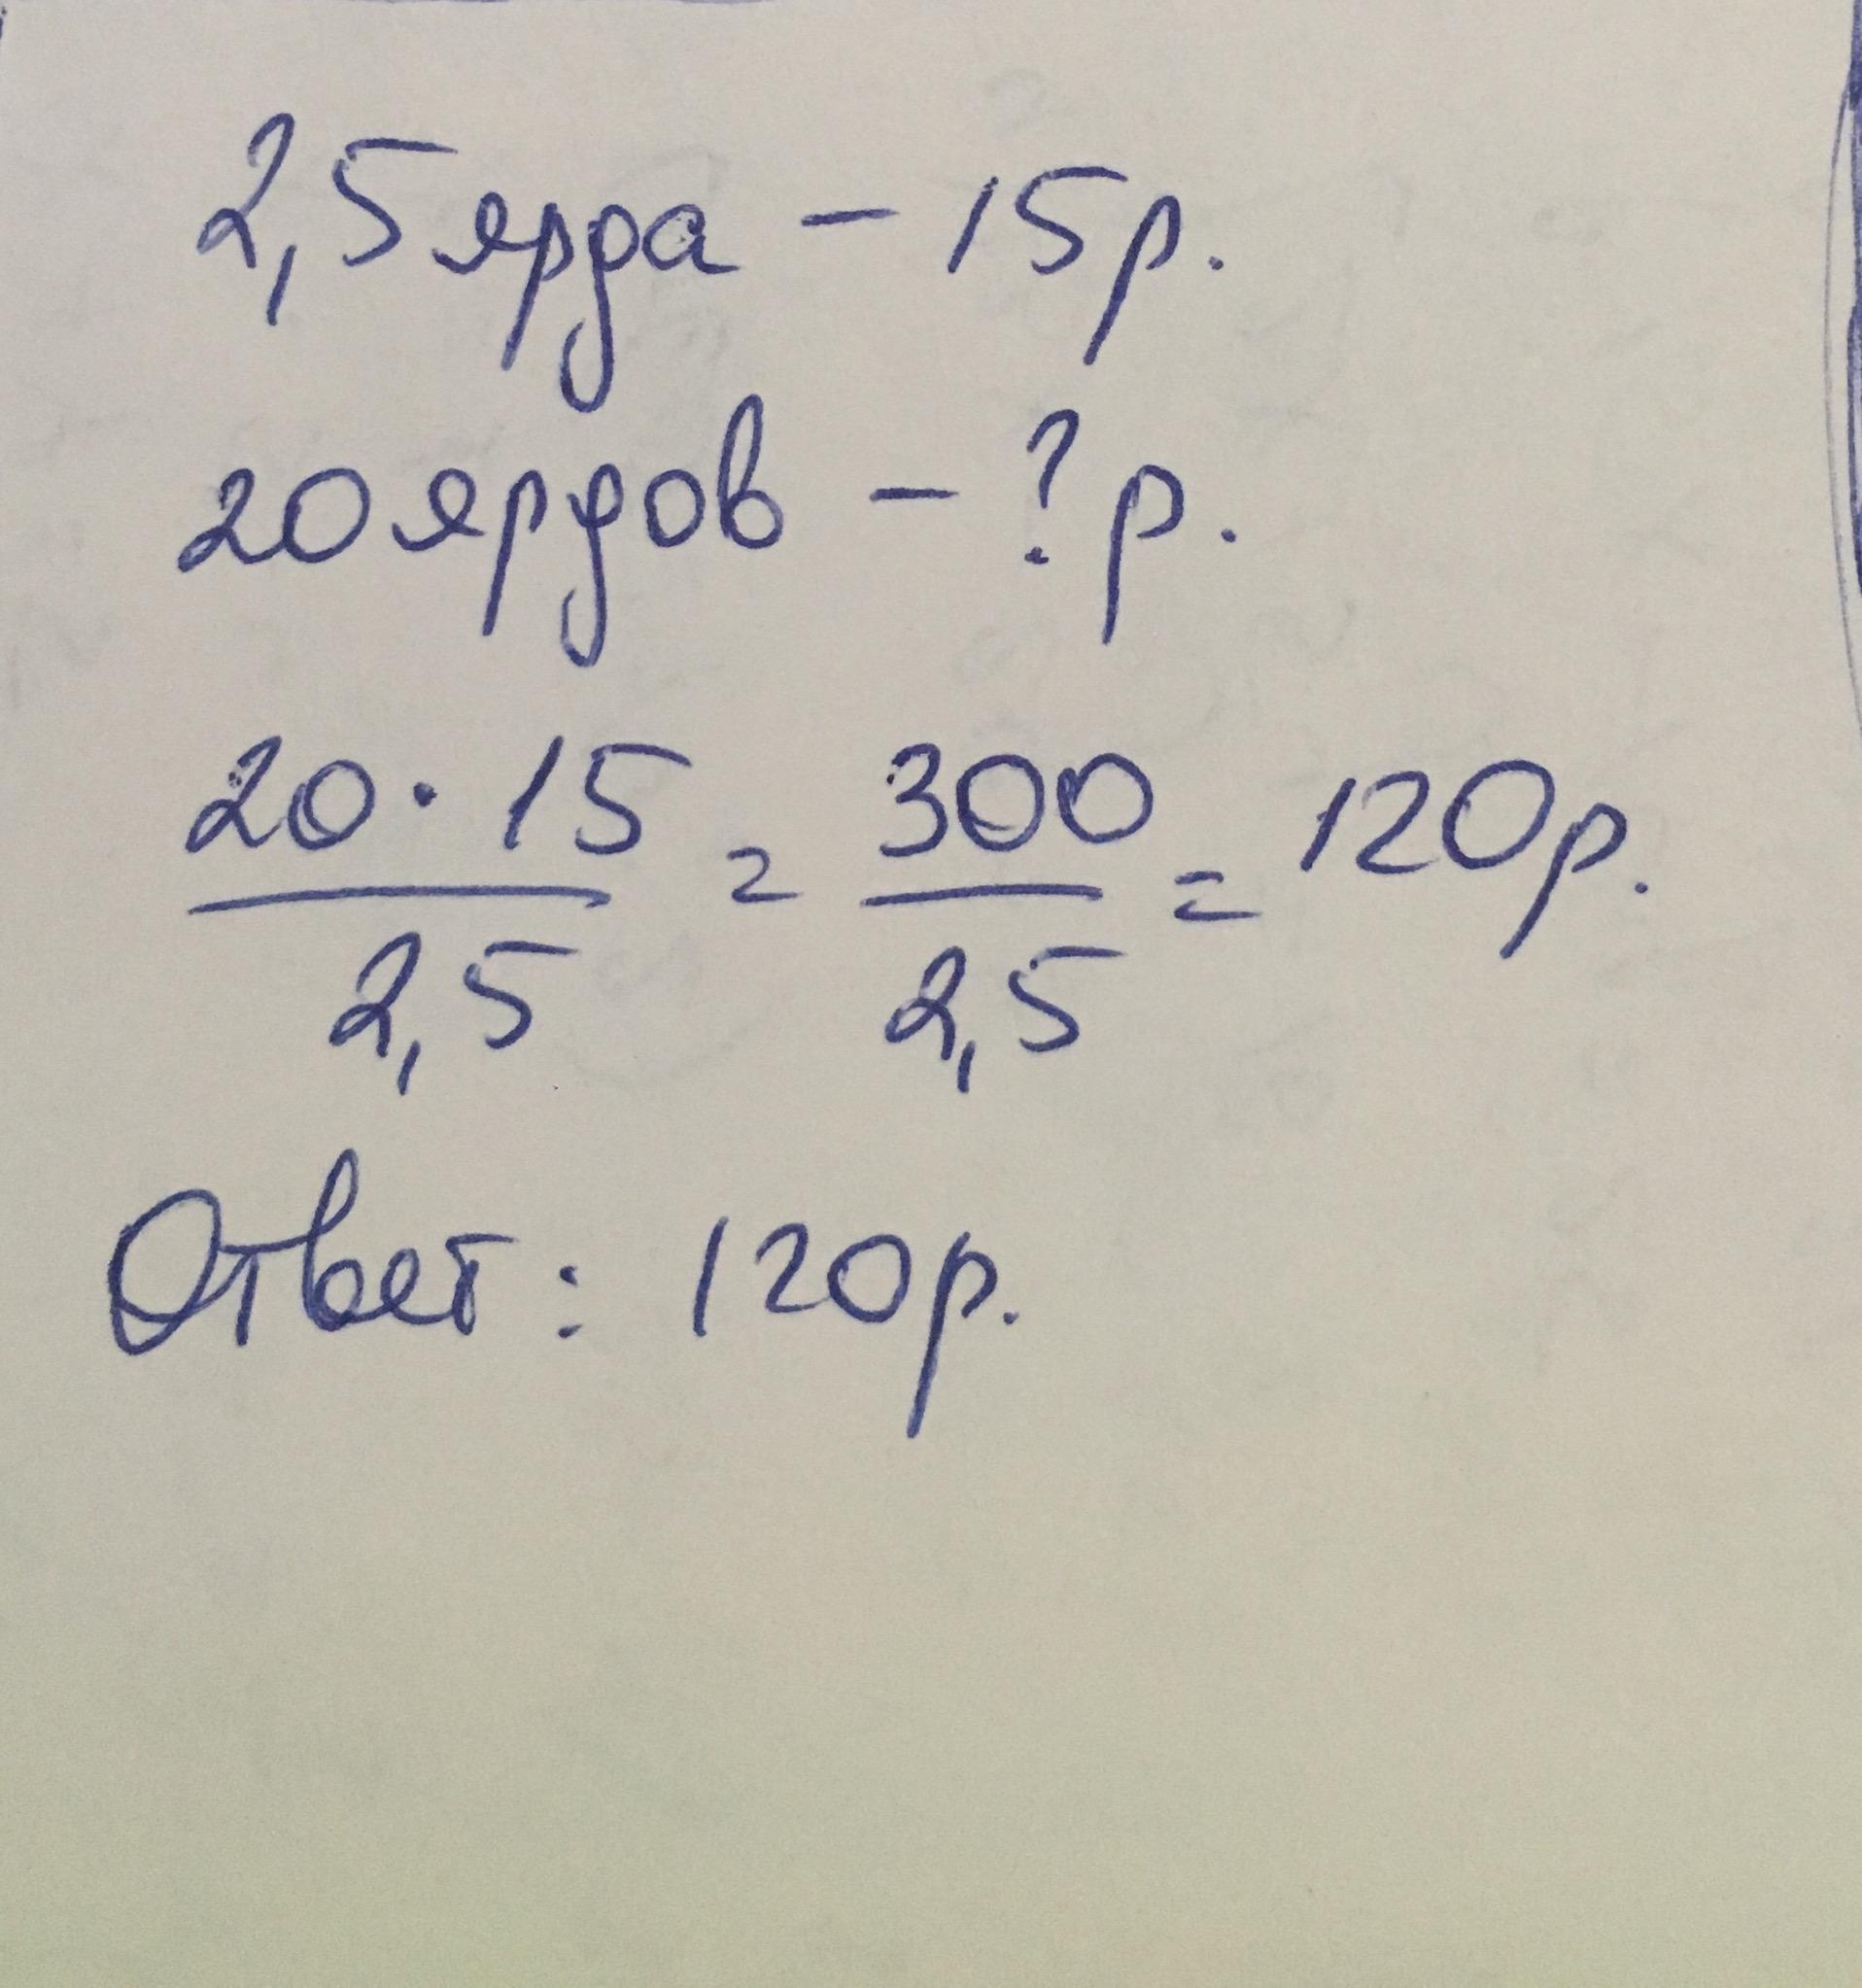 2,5 ярда – 15р.
20 ярдов – ? р.
20 · 15 / 2,5 = 300 / 2,5 = 120р.
Ответ: 120р.